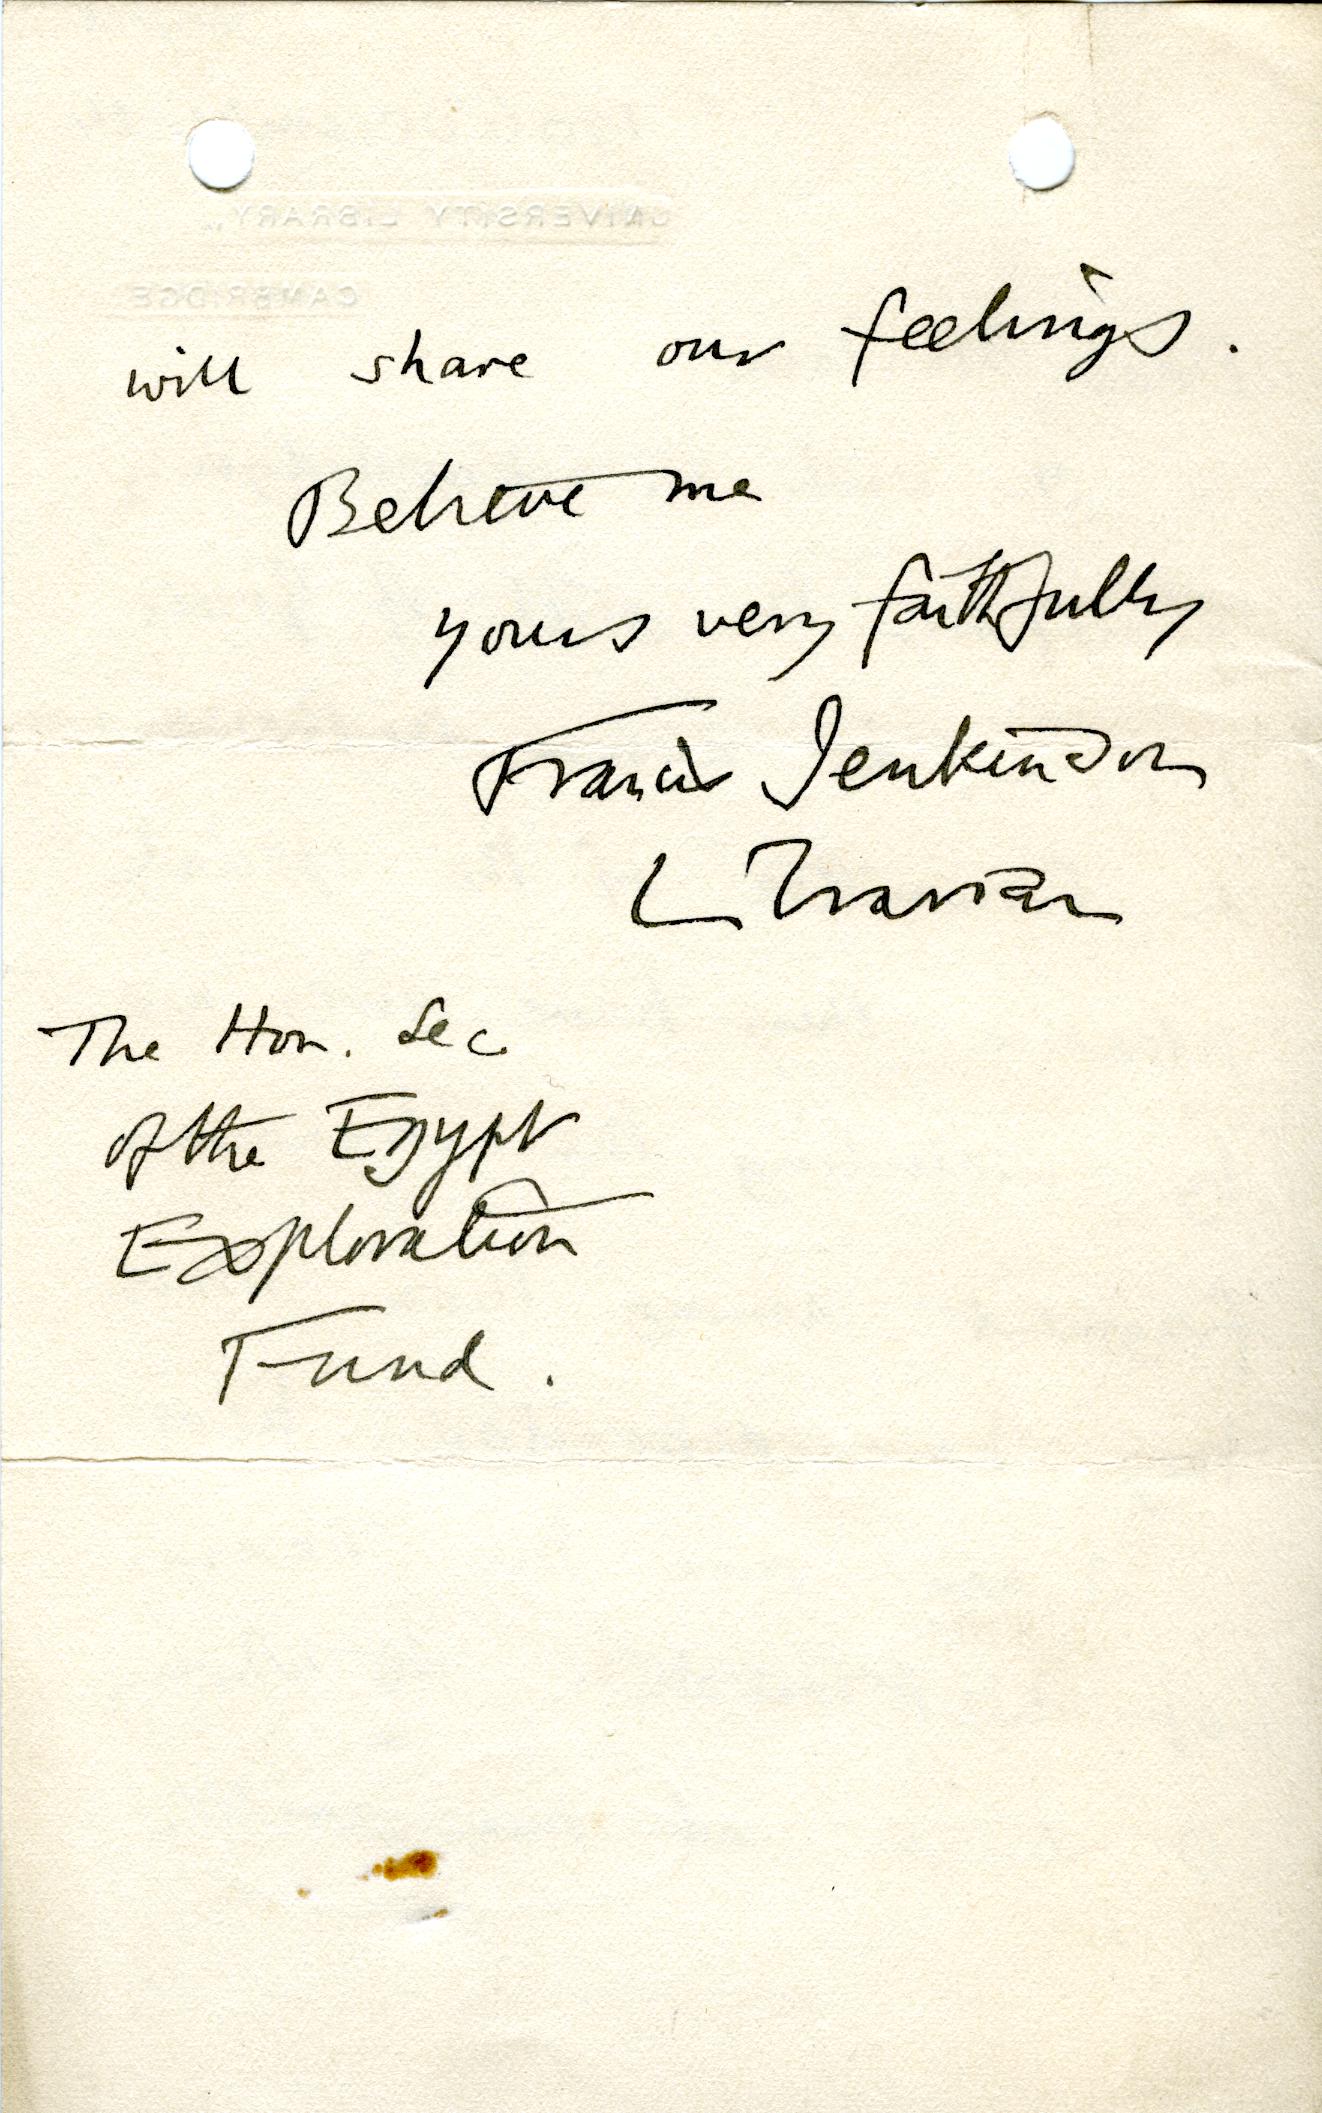 UNIVERSITY LIBRARY,
CAMBRIDGE
will share our feelings.
Believe me
yours very faithfully
Francis Jenkinson
Librarian
The Hon. Sec
of the Egypt
Exploration
Fund.